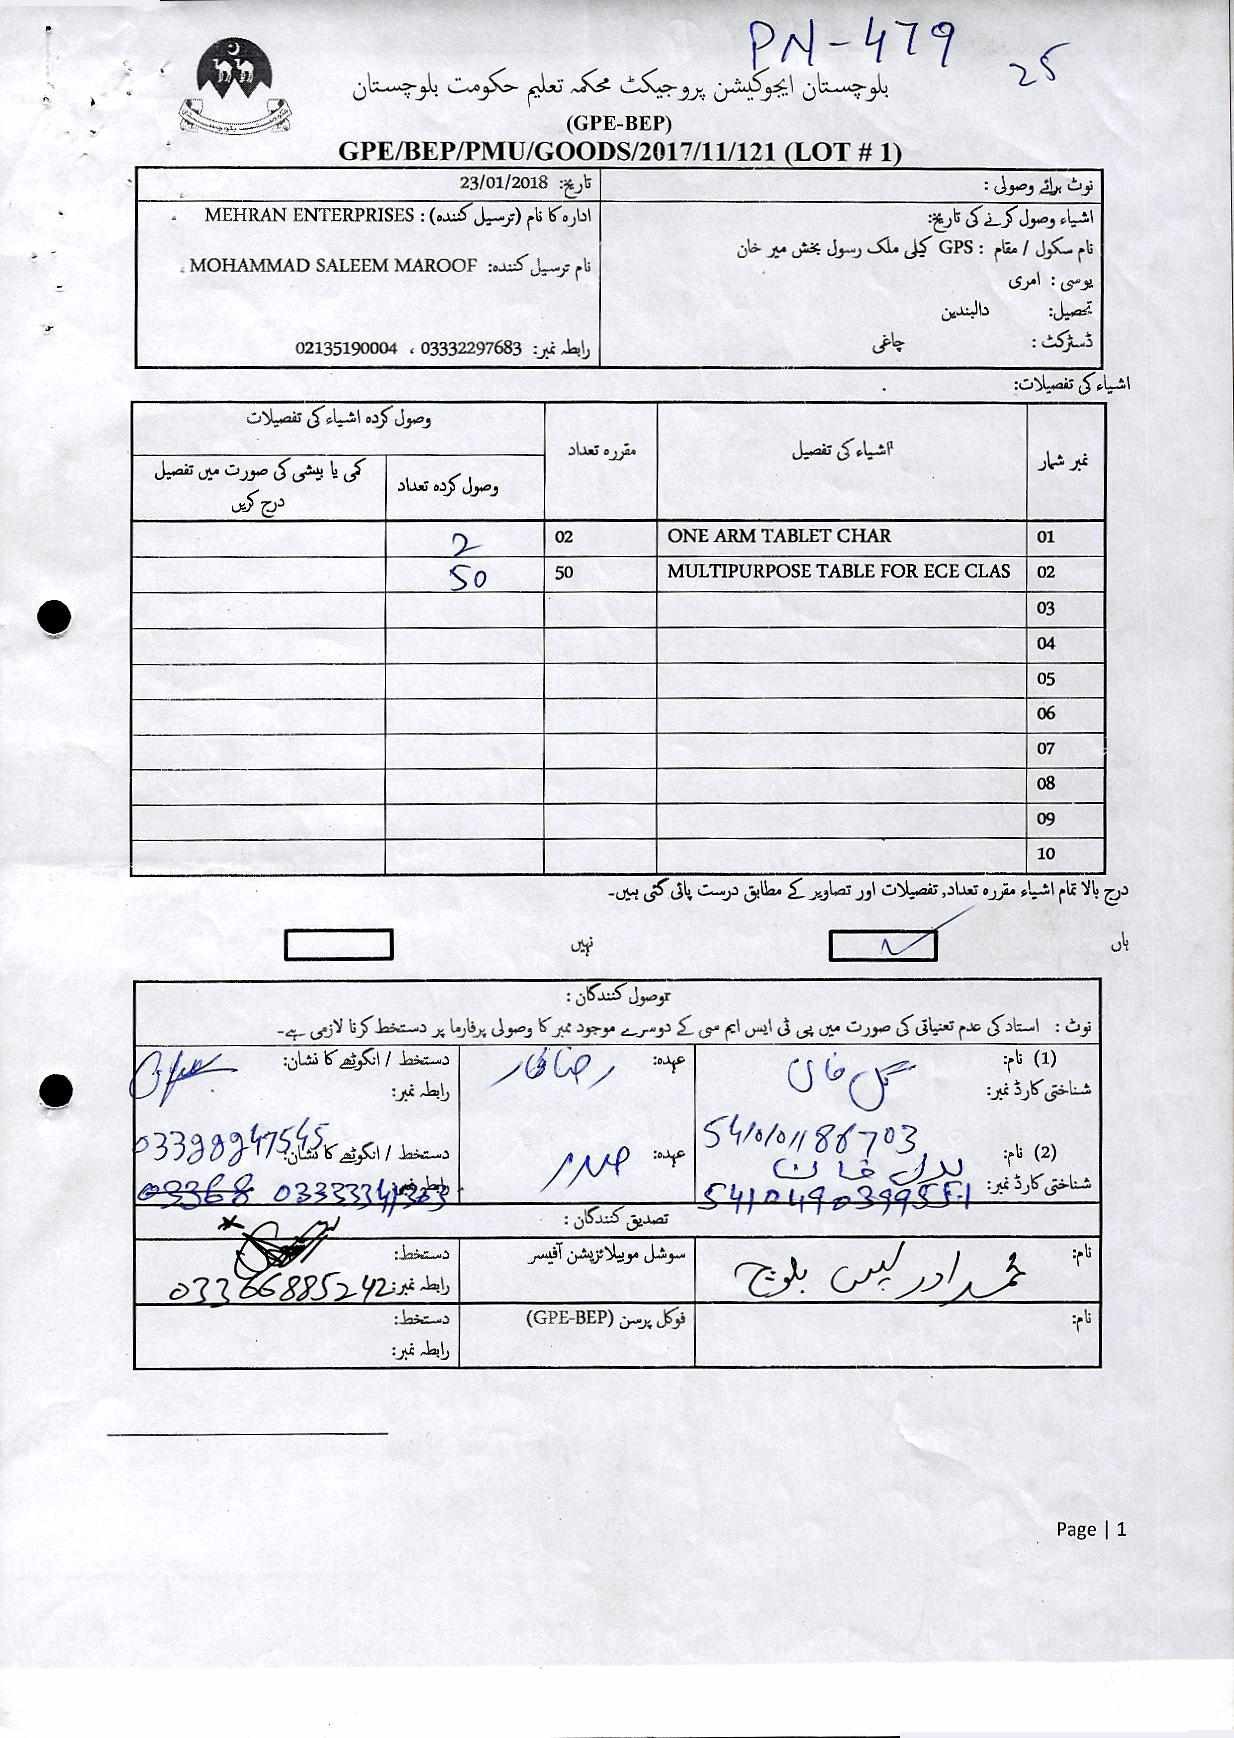 PN-479
25
بلوچستان ایجوکیشن پروجیکٹ محکمہ تعلیم حکومت بلوچستان
(GPE-BEP)
GPE/BEP/PMU/GOODS/2017/11/121 (LOT # 1)
نوٹ برائے وصولی :
تاریخ: 23/01/2018
اشیاء وصول کرنے کی تاریخ:
ادارہ کا نام (ترسیل کنندہ) : MEHRAN ENTERPRISES
نام سکول / مقام : GPS کیلی ملک رسول بخش میر خان
نام ترسیل کنندہ: MOHAMMAD SALEEM MAROOF
یوسی : امری
تحصیل: دالبندین
ڈسٹرکٹ : چاغی
رابطہ نمبر: 03332297683 ، 02135190004
اشیاء کی تفصیلات:
نمبر شمار
اشیاء کی تفصیل
مقررہ تعداد
وصول کردہ اشیاء کی تفصیلات
وصول کردہ تعداد
کمی یا بیشی کی صورت میں تفصیل
درج کریں
01 ONE ARM TABLET CHAR 02 2
02 MULTIPURPOSE TABLE FOR ECE CLAS 50 50
03
04
05
06
07
08
09
10
درج بالا تمام اشیاء مقررہ تعداد, تفصیلات اور تصاویر کے مطابق درست پائی گئی ہیں۔
ہاں
نہیں
وصول کنندگان :
نوٹ : استاد کی عدم تعیناتی کی صورت میں پی ٹی ایس ایم سی کے دوسرے موجود ممبر کا وصولی پرفارما پر دستخط کرنا لازمی ہے۔
(1) نام: گل خان
عہدہ:
دستخط / انگوٹھے کا نشان:
شناختی کارڈ نمبر:
رابطہ نمبر:
(2) نام: خان
عہدہ: صدر
دستخط / انگوٹھے کا نشان:
شناختی کارڈ نمبر:
تصدیق کنندگان :
نام: محمد ادریس بلوچ
سوشل موبیلائزیشن آفیسر
دستخط:
رابطہ نمبر: 03366885242
نام:
فوکل پرسن (GPE-BEP)
دستخط:
رابطہ نمبر:
Page | 1